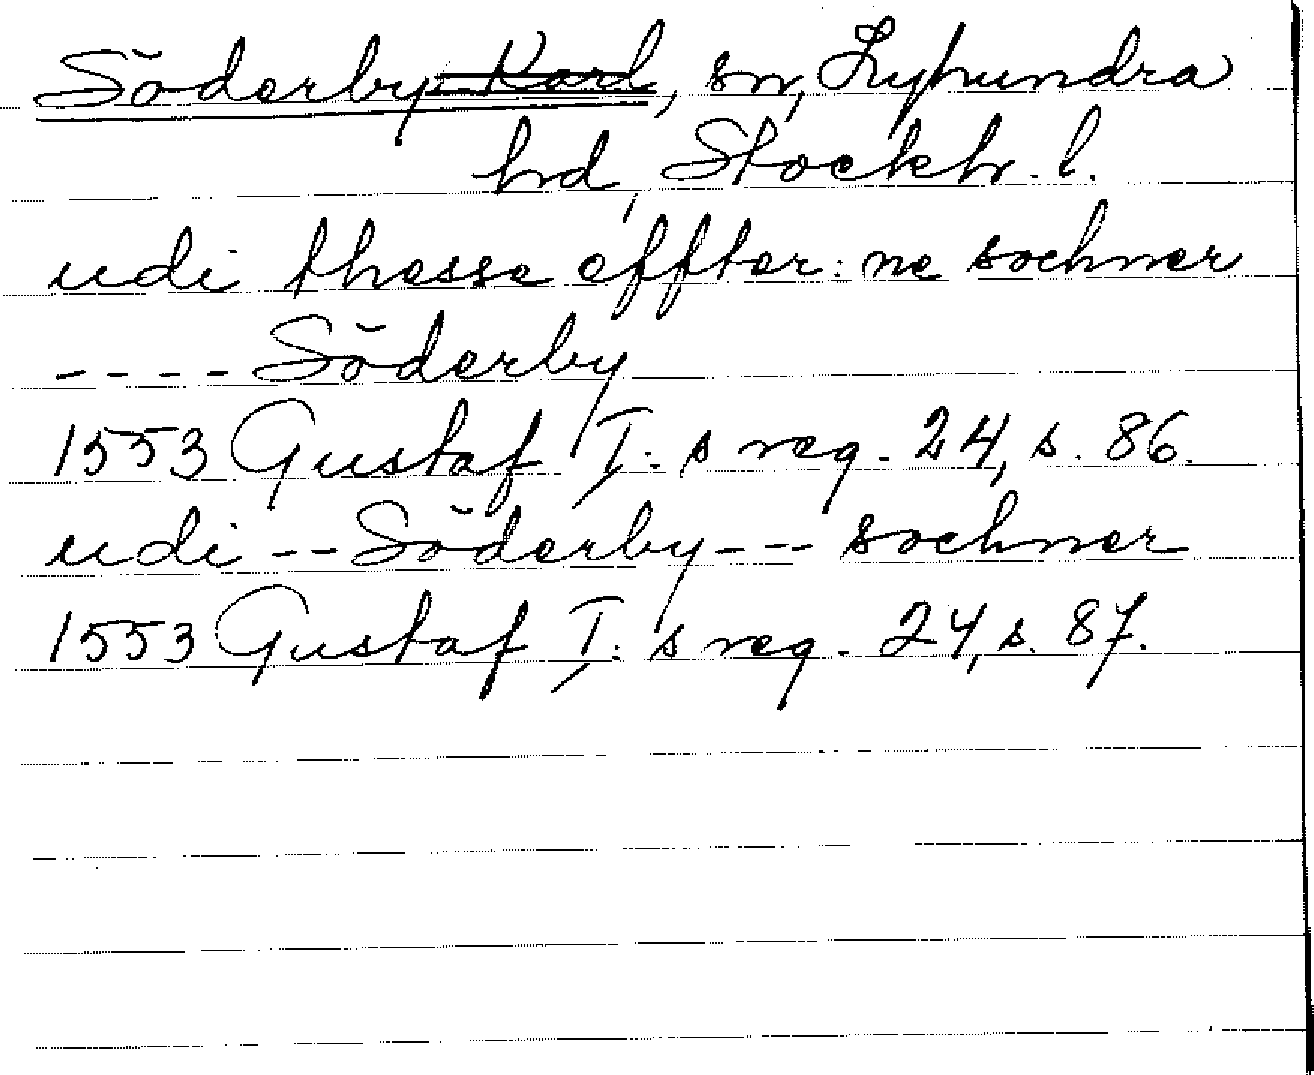 Söderby-Karl, sn, Lyhundra
hd, Stockh. l.
udi thesse effter: ne sochner
---- Söderby
1553 Gustaf I: s reg. 24, s. 86.
udi -- Söderby --- sochner
1553 Gustaf I: s reg. 24, s. 87.